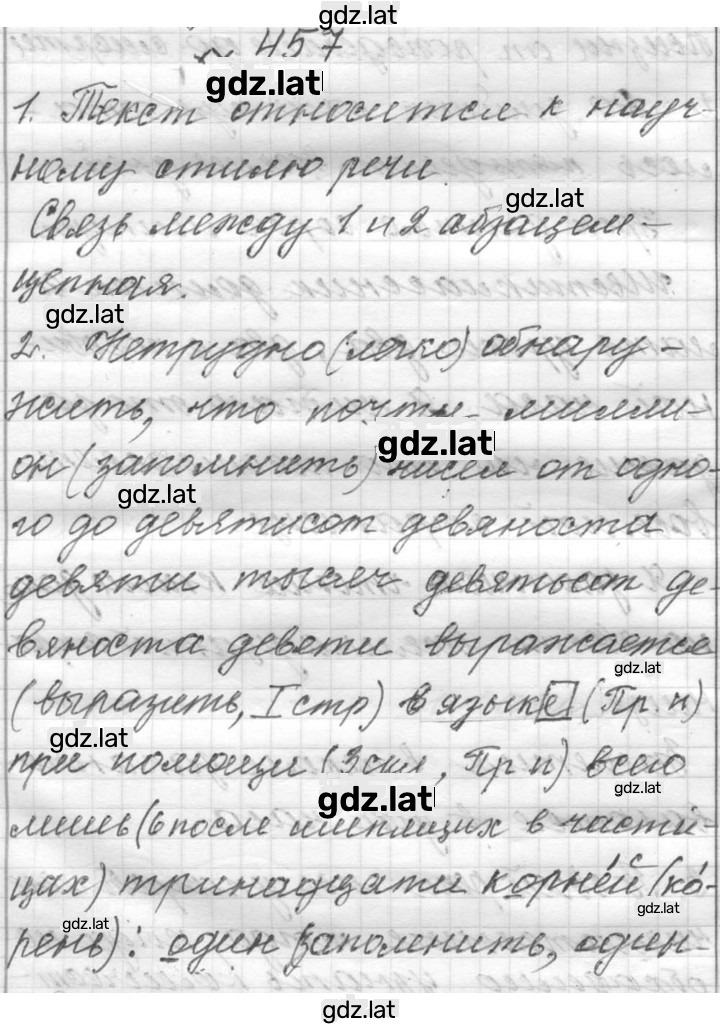 gdz.lat
№ 457
gdz.lat
1. Текст относится к науч-
ному стилю речи
gdz.lat
Связь между 1 и 2 абзацем -
цепная.
gdz.lat
2. Нетрудно (легко) обнару-
жить, что почти милли-
gdz.lat
он (запомнить) чисел от одно-
gdz.lat
го до девятисот девяноста
девяти тысяч девятьсот де-
вяноста девети выражается
gdz.lat
(выразить, I спр) в языке (Пр. п)
gdz.lat
при помощи (3 скл, Пр п) всего
gdz.lat
gdz.lat
лишь (ь после шипящих в части-
цах) тринадцати корней (ко́-
gdz.lat
gdz.lat
рень): один запомнить, один-
gdz.lat